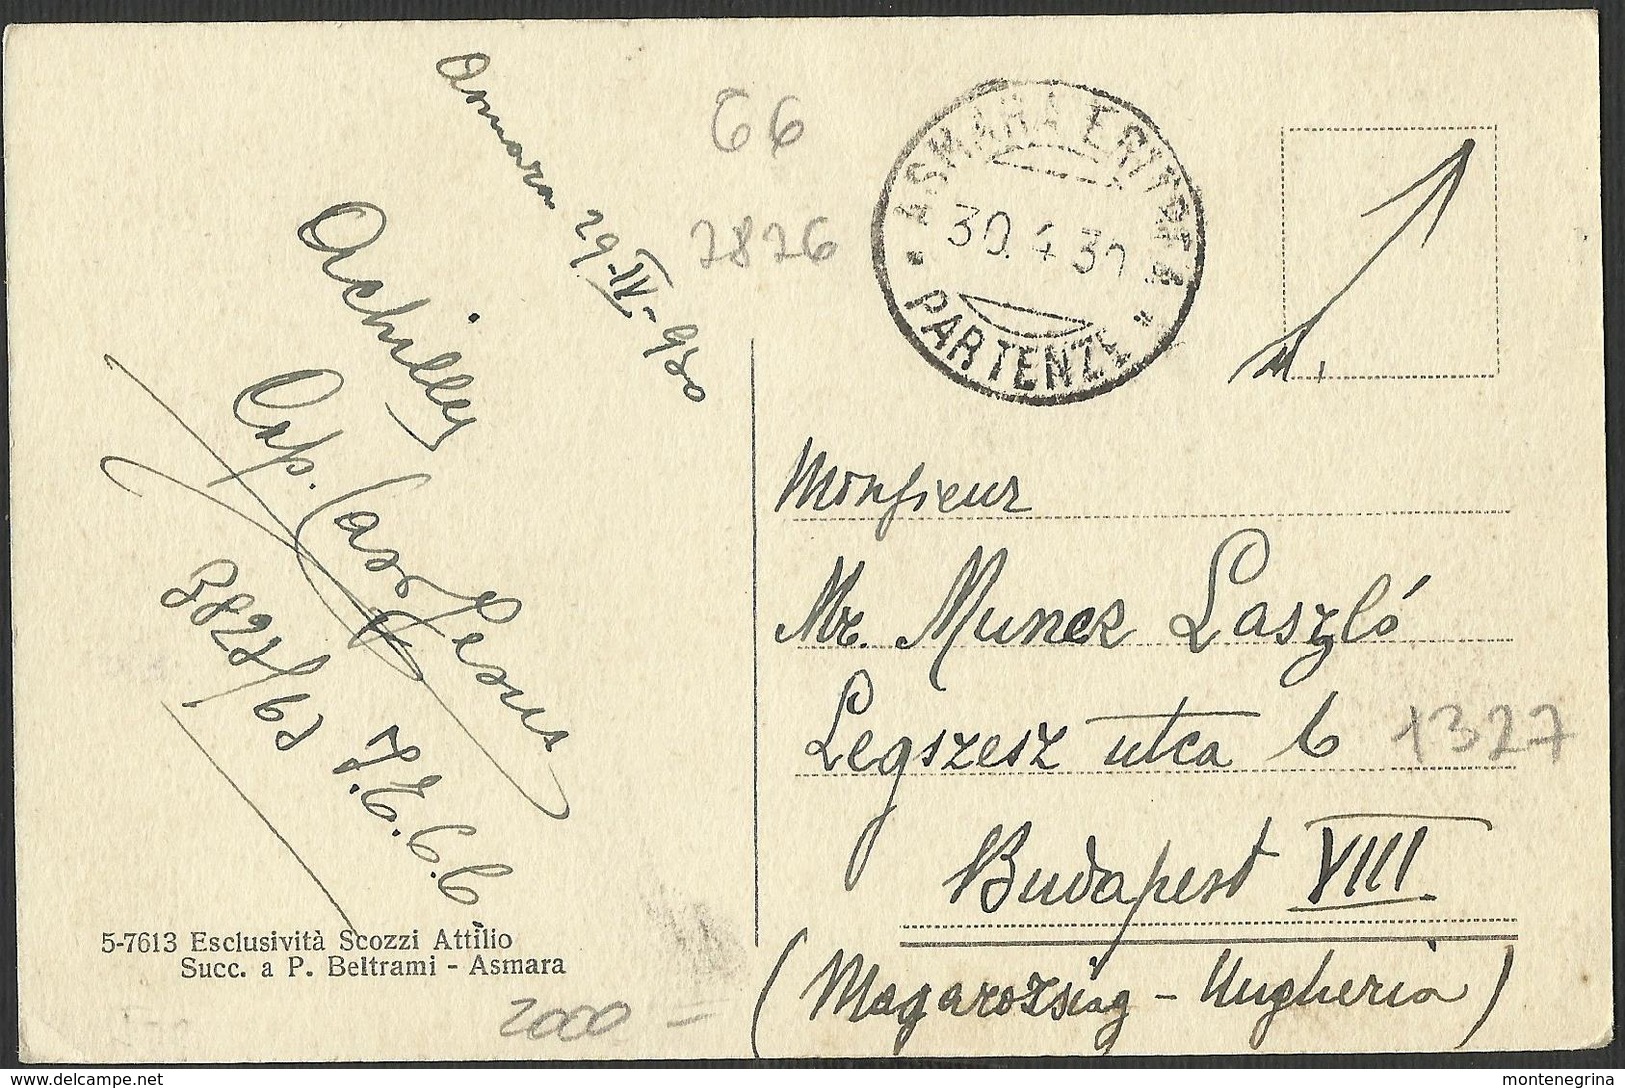 Asmara 29-IV-930
Achilles
Cap.
3827/67
J.E.C.C.
5-7613 Esclusività Scozzi Attilio
Succ. a P. Beltrami - Asmara
2000 -
66
2826
ASMARA ERITREA
30.4.30
PARTENZE
Monsieur
Mr. Muncz Laszló
Legszesz utca 6
1327
Budapest VIII
(Magarozsiag - Ungheria)
montenegrina